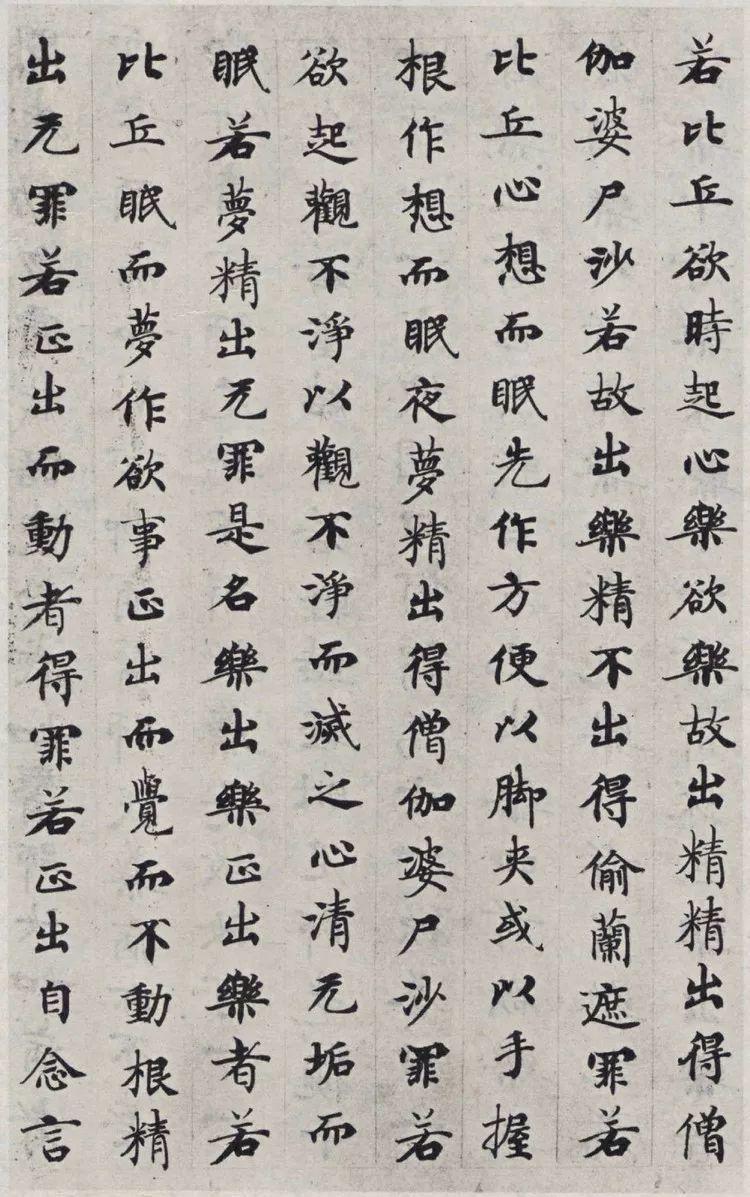 若比丘欲時起心樂欲樂故出精精出得僧
伽婆尸沙若故出樂精不出得偷蘭遮罪若
比丘心想而眠先作方便以脚夾或以手握
根作想而眠夜夢精出得僧伽婆尸沙罪若
欲起觀不淨以觀不淨而滅之心清无垢而
眠若夢精出无罪是名樂出樂正出樂者若
比丘眠而夢作欲事正出而覺而不動根精
出无罪若正出而動者得罪若正出自念言